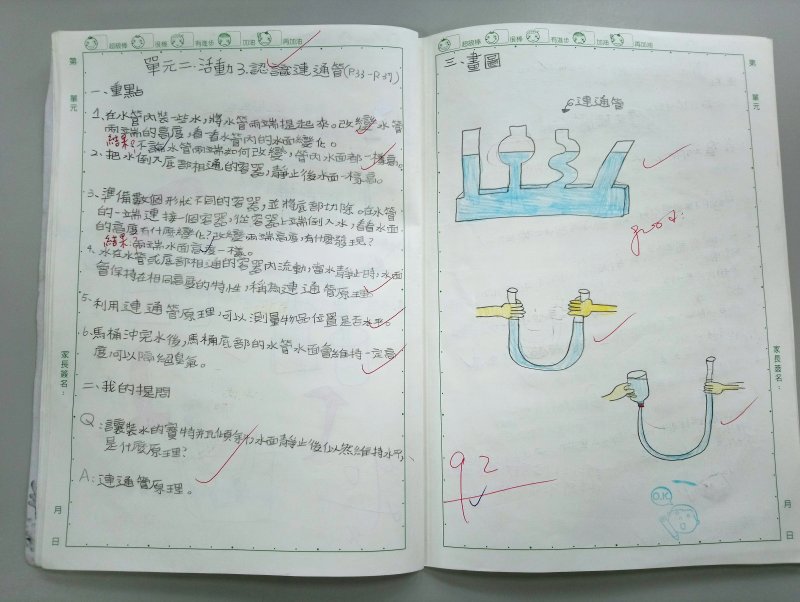 超級棒 很棒 有進步 加油 再加油
第
單元
單元二.活動3.認識連通管(P33-P.37)
一、重點
1.在水管內裝一些水,將水管兩端提起來。改變水管
兩端的高度,看看水管內的水面變化。
結果:不論水管兩端如何改變,管內水面都一樣高。
2.把水倒入底部相通的容器,靜止後水面一樣高。
3.準備數個形狀不同的容器,並將底部切除。在水管
的一端連接一個容器,從容器上端倒入水,看看水面
的高度有什麼變化?改變兩端高度,有什麼發現?
結果:兩端水面高度一樣。
4.水在水管或底部相通的容器內流動,當水靜止時,水面
會保持在相同高度的特性,稱為連通管原理。
5.利用連通管原理,可以測量物品位置是否水平。
6.馬桶沖完水後,馬桶底部的水管水面會維持一定高
度可以隔絕臭氣。
二、我的提問
Q:讓裝水的寶特瓶傾斜,水面靜止後仍然維持水平,
是什麼原理?
A:連通管原理。
家長簽名:
月
日
超級棒 很棒 有進步 加油 再加油
第
單元
三、畫圖
連通管
good!
92
O.K
家長簽名:
月
日